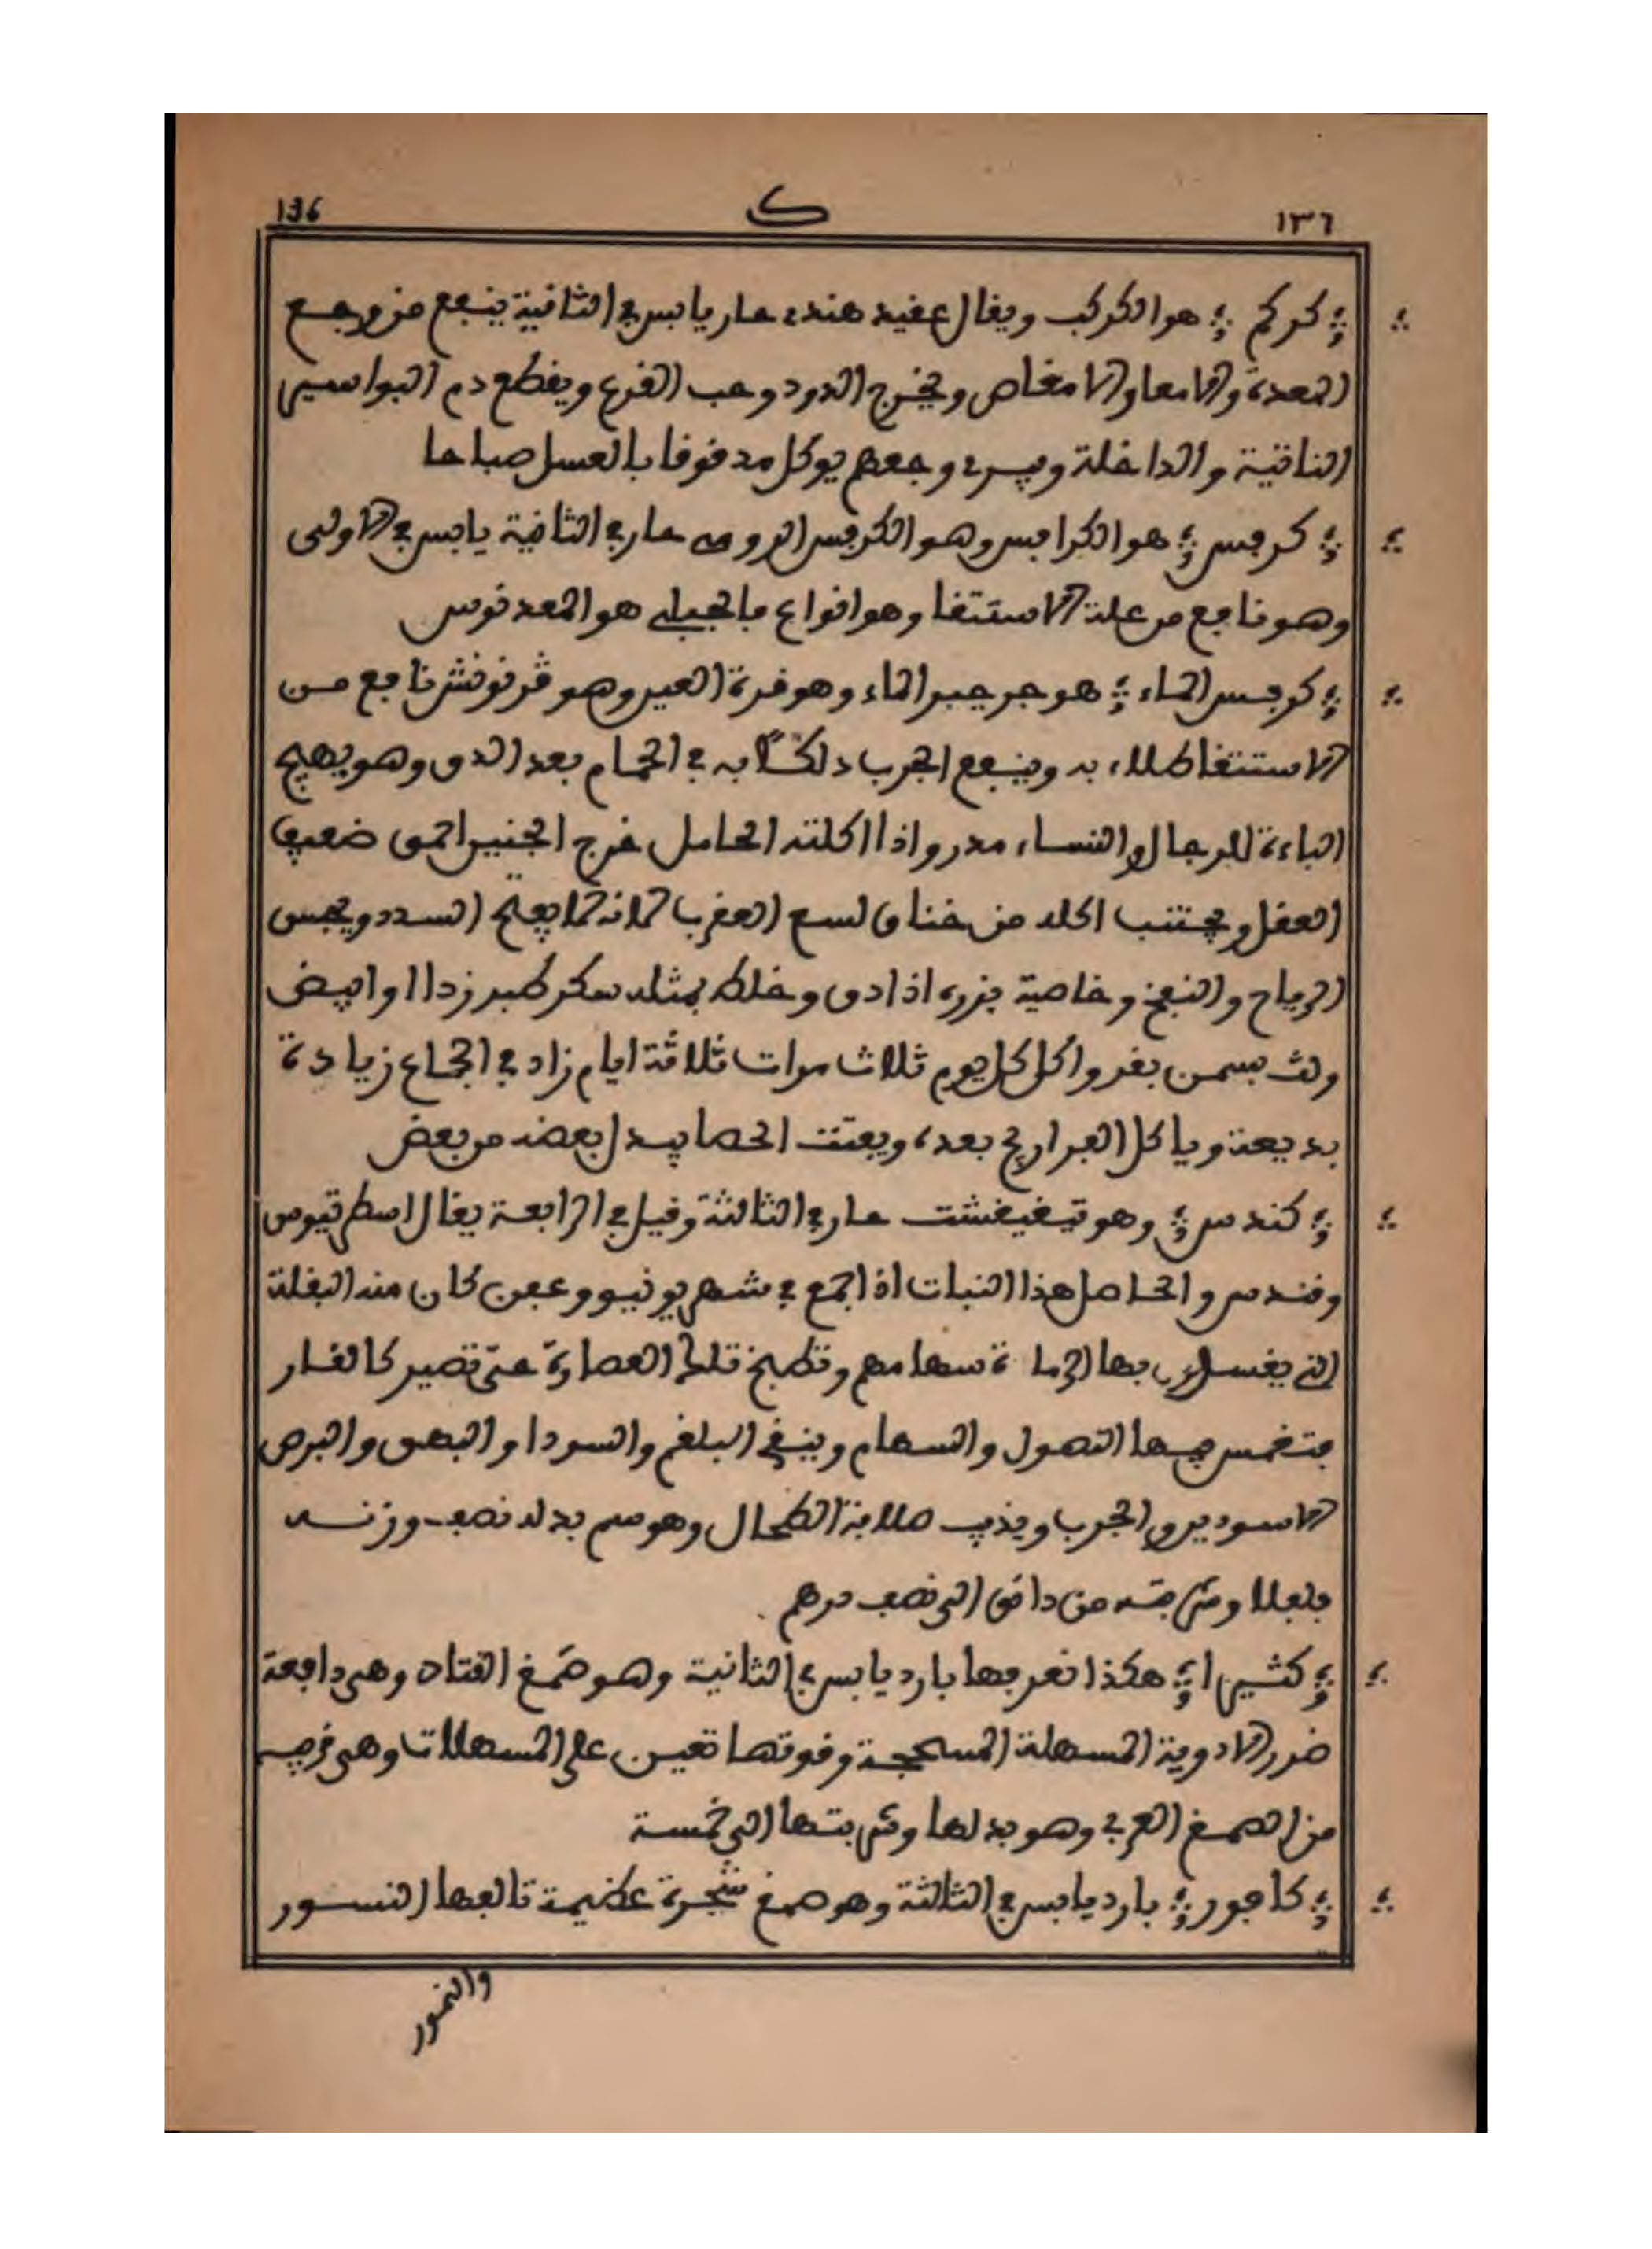 ١٣٦ ك 136
كركم هو الكركب ويقال عقيد هندي حار يابس في الثانية ينفع من وجع
المعدة والامعا والامغاص ويخرج الدود وحب القرع ويقطع دم البواسير
الناتية والداخلة ويبرء وجعهم يوكل مدقوقا بالعسل صباحا
كرفس هو الكرافس وهو الكرفس الرومي حار في الثانية يابس في الاولى
وهو نافع من علة الاستسقا وهو انواع فالجبلي هو المعدنوس
كرفس الماء هو جرجير الماء وهو قرة العين وهو قرنونش نافع من
الاستسقا طلاء به وينفع الجرب دلكا به في الحمام بعد الدق وهو يهيج
الباءة للرجال والنساء مدر واذا اكلته الحامل خرج الجنين احمق ضعيف
العقل ويجتنب اكله من خناق لسع العقرب لانه لما يفتح السدد ويحبس
الرياح والنفخ وخاصية بزره اذا دق وخلط بمثله سكر طبرزد او ابيض
ولث بسمن بقر واكل كل يوم ثلاث مرات ثلاثة ايام زاد في الجماع زيادة
بديعة وياكل الفراريج بعده ويفتت الحصا يبدل بعضه من بعض
كندس وهو تيغيغشت حار في الثالثة وقيل في الرابعة يقال اسطرتيوس
وقندس والحاصل هذا النبات اذا جمع في شهر يونيو وعجن كان منه البقلة
التي يغسلون بها الرماة سهامهم وتطبخ تلك العصارة حتى تصير كالقار
فتغمس فيها النصول والسهام وينقي البلغم والسودا والبهق والبرص
الاسودين والجرب ويذيب صلابة الطحال وهو سم بدله نصف وزنه
فلفلا وشربته من دانق الى نصف درهم
كثيرا هكذا نعرفها بارد يابس في الثانية وهو صمغ القتاد وهي دافعة
ضرر الادوية المسهلة المسحجة وقوتها تعين على المسهلات وهي قريبة
من الصمغ العربي وهو بدلها وشربتها الى خمسة
كافور بارد يابس في الثالثة وهو صمغ شجرة عظيمة تالفها النسور
والنمور